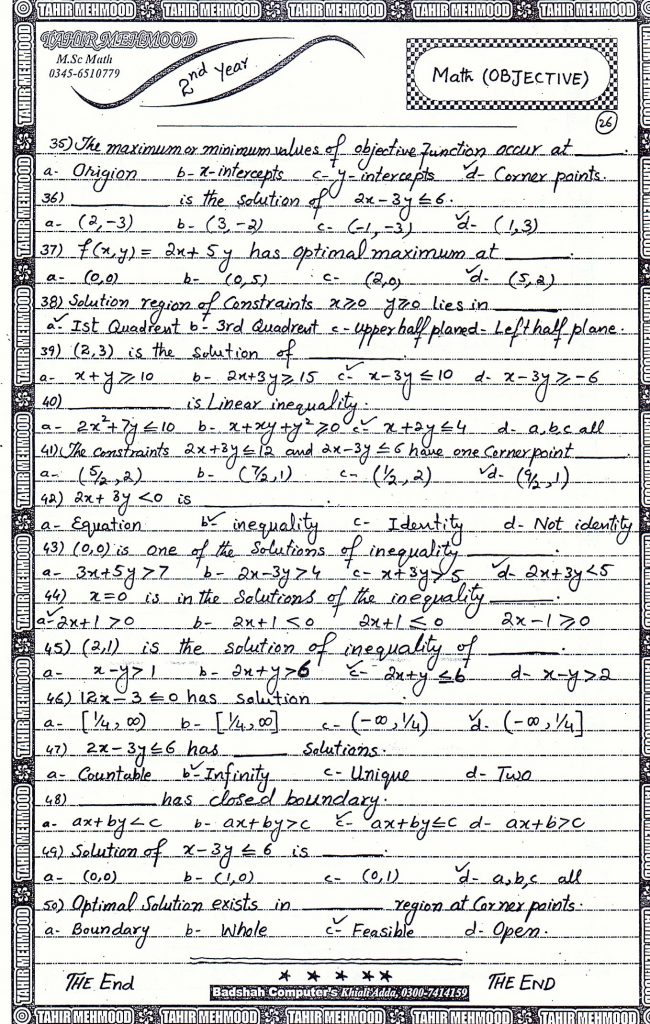 TAHIR MEHMOOD TAHIR MEHMOOD TAHIR MEHMOOD TAHIR MEHMOOD TAHIR MEHMOOD
TAHIR MEHMOOD
M.Sc Math
0345-6510779
2nd Year
Math (OBJECTIVE)
26
35) The maximum or minimum values of objective Function occur at ______.
a- Origion b- x-intercepts c- y-intercepts ✓d- Corner points.
36) ______ is the solution of 2x-3y≤6.
a- (2,-3) b- (3,-2) c- (-1,-3) ✓d- (1,3)
37) f(x,y) = 2x+5y has optimal maximum at ______.
a- (0,0) b- (0,5) c- (2,0) ✓d- (5,2)
38) Solution region of Constraints x≥0 y≥0 lies in ______
a✓- Ist Quadrent b- 3rd Quadrent c- upper half plane d- Left half plane.
39) (2,3) is the solution of ______.
a- x+y≥10 b- 2x+3y≥15 c✓- x-3y≤10 d- x-3y≥-6
40) ______ is Linear inequality.
a- 2x²+7y≤10 b- x+xy+y²≥0 c✓- x+2y≤4 d- a,b,c all
41) The constraints 2x+3y≤12 and 2x-3y≤6 have one Corner point ______.
a- (5/2,2) b- (7/2,1) c- (1/2,2) ✓d- (9/2,1)
42) 2x+3y<0 is ______.
a- Equation b✓- inequality c- Identity d- Not identity
43) (0,0) is one of the Solutions of inequality ______.
a- 3x+5y>7 b- 2x-3y>4 c- x+3y>5 ✓d- 2x+3y<5
44) x=0 is in the Solutions of the inequality ______.
a✓- 2x+1>0 b- 2x+1<0 2x+1≤0 2x-1≥0
45) (2,1) is the solution of inequality of ______.
a- x-y>1 b- 2x+y>6 ✓c- 2x+y≤6 d- x-y>2
46) 12x-3≤0 has solution ______.
a- [1/4,∞) b- [1/4,∞] c- (-∞,1/4) ✓d. (-∞,1/4]
47) 2x-3y≤6 has ______ Solutions.
a- Countable b✓- Infinity c- Unique d- Two
48) ______ has closed boundary.
a- ax+by<c b- ax+by>c ✓c- ax+by≤c d- ax+b>c
49) Solution of x-3y≤6 is ______.
a- (0,0) b- (1,0) c- (0,1) ✓d- a,b,c all
50) Optimal Solution exists in ______ region at Corner points.
a- Boundary b- Whole c✓- Feasible d- Open.
THE End ★ ★ ★ ★★ THE END
Badshah Computer's Khiali Adda, 0300-7414159
TAHIR MEHMOOD TAHIR MEHMOOD TAHIR MEHMOOD TAHIR MEHMOOD TAHIR MEHMOOD